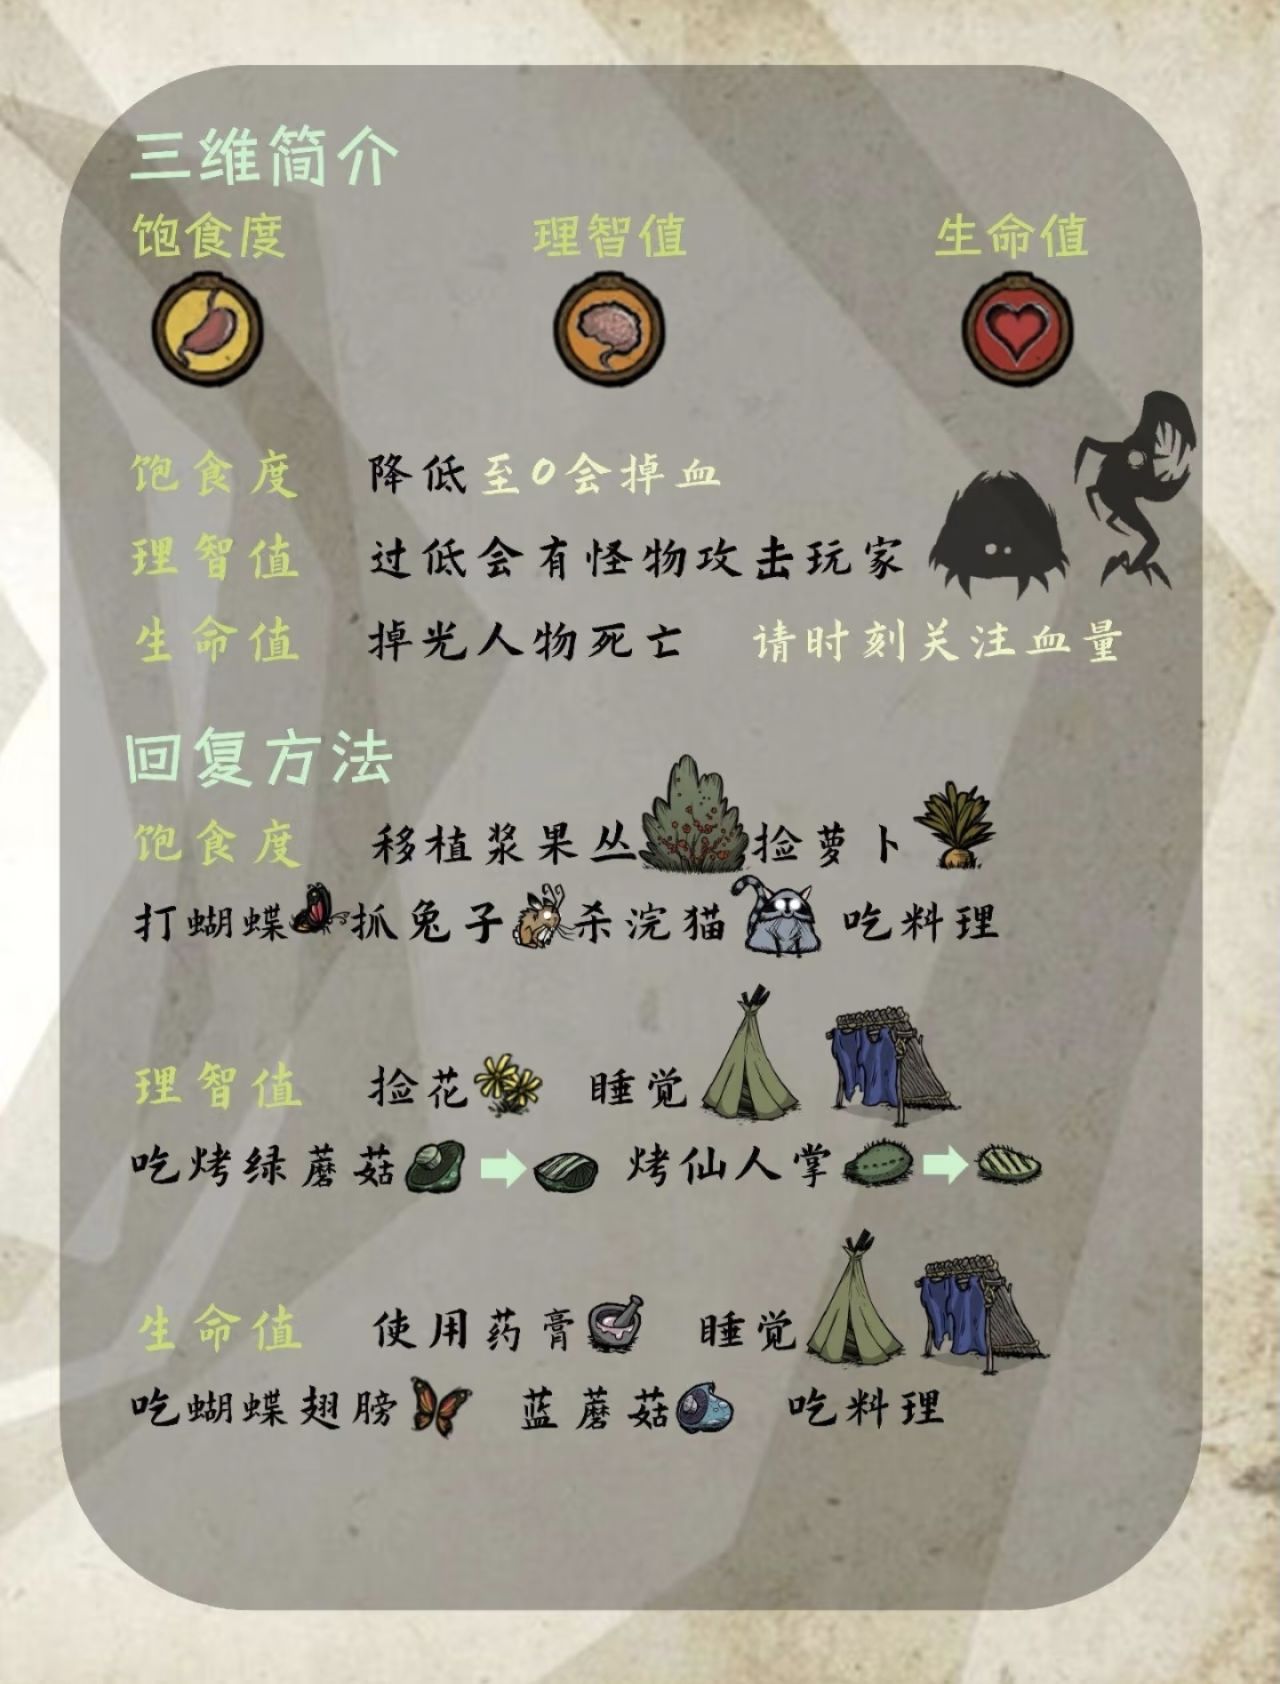 三维简介
饱食度 理智值 生命值
饱食度 降低至0会掉血
理智值 过低会有怪物攻击玩家
生命值 掉光人物死亡 请时刻关注血量
回复方法
饱食度 移植浆果丛 捡萝卜
打蝴蝶 抓兔子 杀浣猫 吃料理
理智值 捡花 睡觉
吃烤绿蘑菇 烤仙人掌
生命值 使用药膏 睡觉
吃蝴蝶翅膀 蓝蘑菇 吃料理